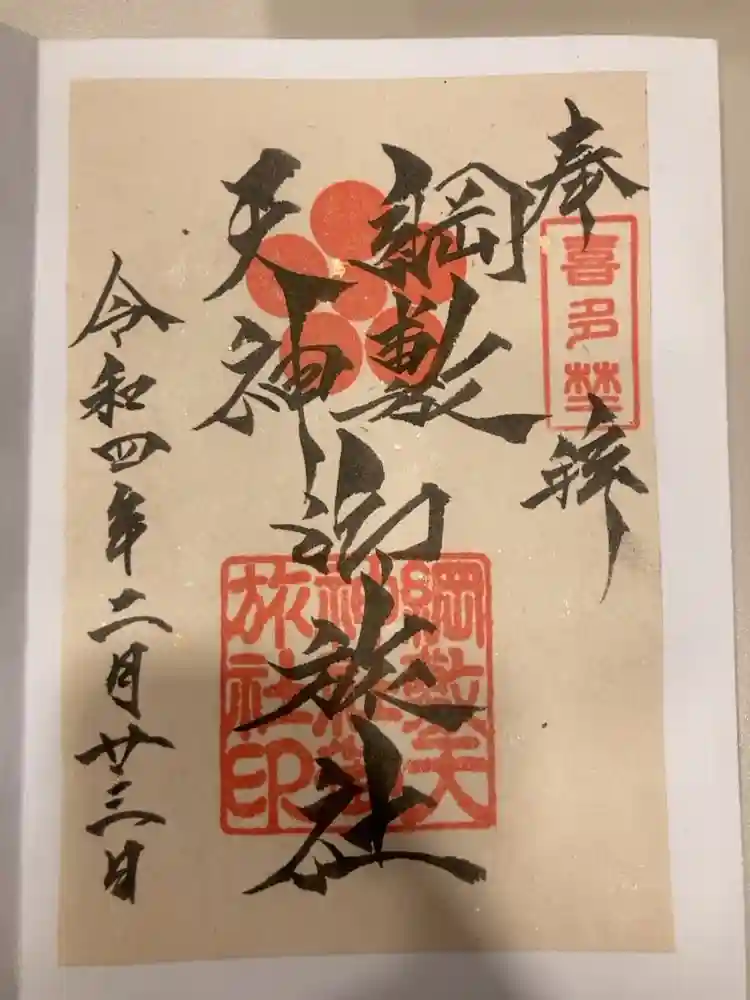 奉拝
喜多埜
綱敷
天神
御旅社
綱敷天
神社御
旅社印
令和四年二月廿三日